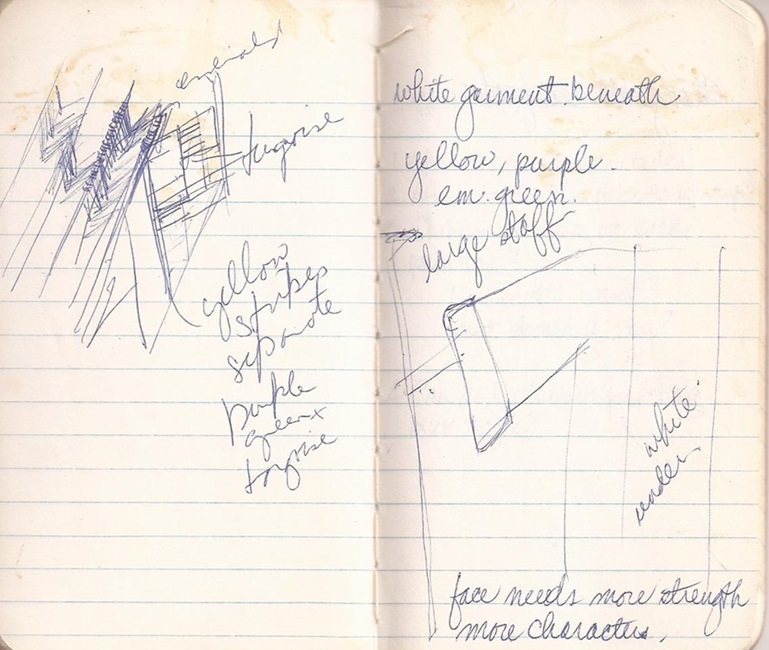 emerald
turqoise
yellow
stripes
separate
purple
green +
torqoise
white garment beneath
yellow, purple.
em. green.
large staff
white
under.
face needs more strength
more character.